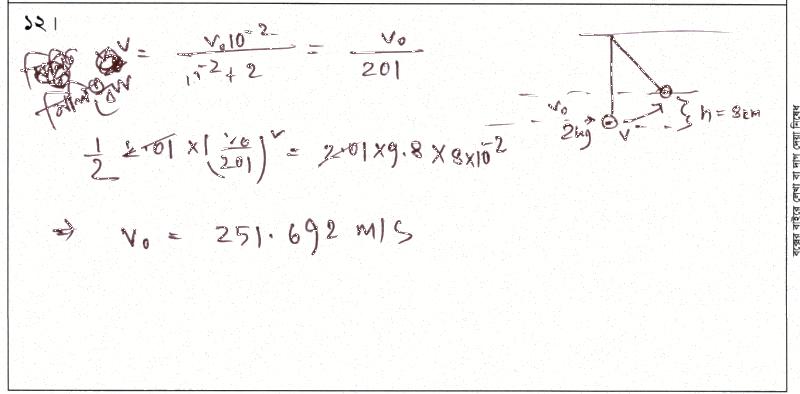 ১২।
V = V₀10⁻² / 10⁻²+2 = V₀ / 201
1/2 2.01 × (V₀/201)² = 2.01×9.8×8×10⁻²
⇒ V₀ = 251.692 m/s
V₀
2kg
V
h = 8cm
বক্সের বাইরে লেখা বা দাগ দেয়া নিষেধ